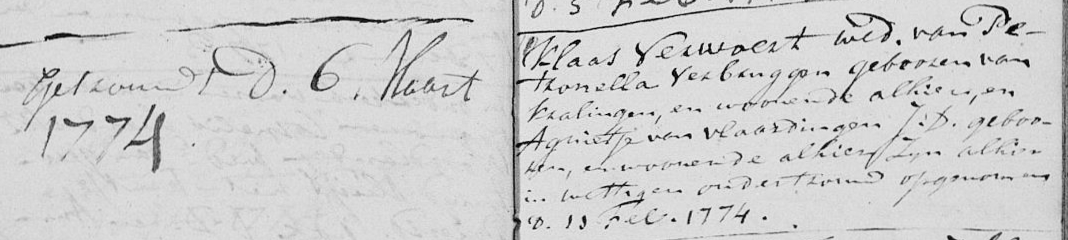 Getrouwt D. 6. Maart
1774
D. 5 Feb.
Klaas Verwoert wed. van Pe-
tronella Verbruggen gebooren van
Kralingen, en woonende alhier, en
Agnietje van vlaardingen J:D. geboo-
ren, en woonende alhier Zyn alhier
in wettigen ondertrouw opgenomen
D. 13 Feb. 1774.